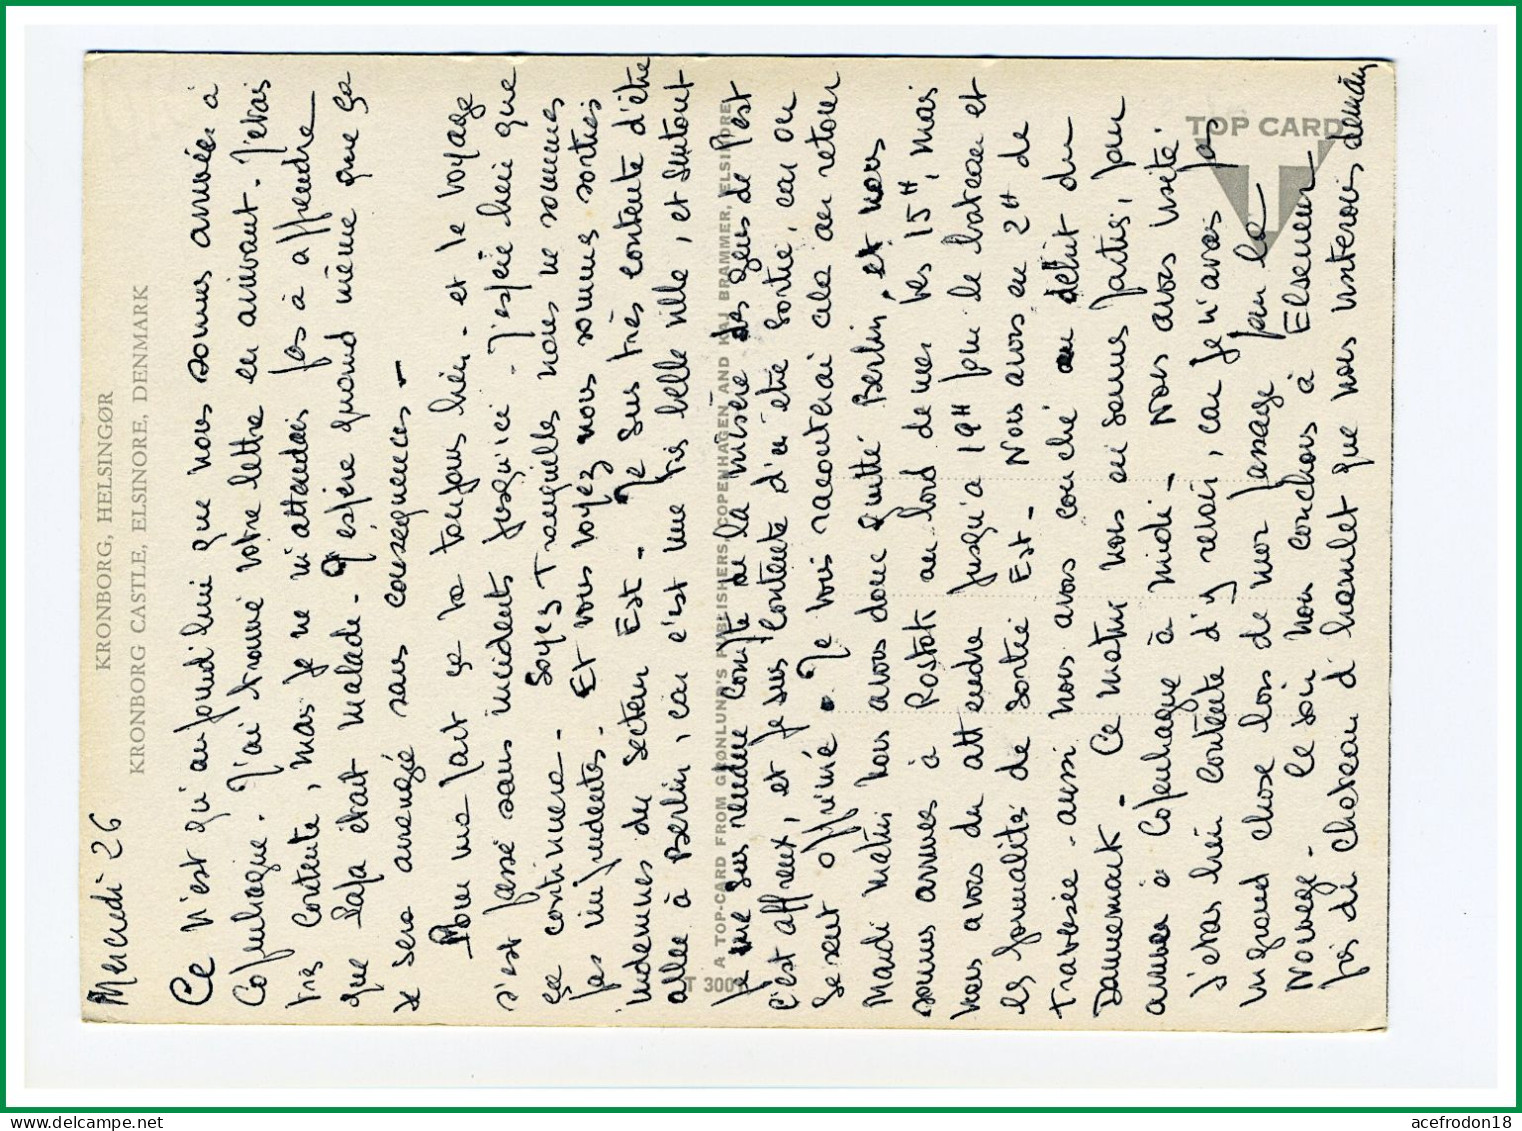 KRONBORG, HELSINGØR
KRONBORG CASTLE, ELSINORE, DENMARK
Mercredi 26
Ce n'est qu'aujourd'hui que nous sommes arrivées à
Copenhague. J'ai trouvé votre lettre en arrivant. J'étais
très contente, mais je ne m'attendais pas à apprendre
que Papa était malade. J'espère quand même que ça
se sera arrangé sans conséquences -
Pour ma part ça va toujours bien. et le voyage
s'est passé sans incidents jusqu'ici - J'espère bien que
ça continuera - Soyez tranquilles nous ne sommes
pas imprudentes. Et vous voyez nous sommes sorties
indemnes du secteur Est. Je suis très contente d'être
allée à Berlin, car c'est une très belle ville, et surtout
je me suis rendue compte de la misère des gens de l'est
c'est affreux, et je suis contente d'en être sortie, car on
se sent opprimé. Je vous raconterai cela au retour
Mardi matin nous avons donc quitté Berlin, et nous
sommes arrivées à Rostok au bord de mer vers 15H, mais
nous avons du attendre jusqu'à 19H pour le bateau et
les formalités de sortie Est - Nous avons eu 2H de
traversée - aussi nous avons couché au début du
Danemark - Ce matin nous en sommes parties, pour
arriver à Copenhague à midi - Nous avons visité.
J'étais bien contente d'y revoir, car je n'avais pas
vu grand chose lors de mon passage pour la
Norvège - Ce soir nous couchons à Elseneur
près du chateau d'hamlet que nous visiterons demain
TOP CARD
T 300
A TOP-CARD FROM GRØNLUND'S PUBLISHERS, COPENHAGEN AND KAJ BRAMMER, ELSINORE
acefrodon18